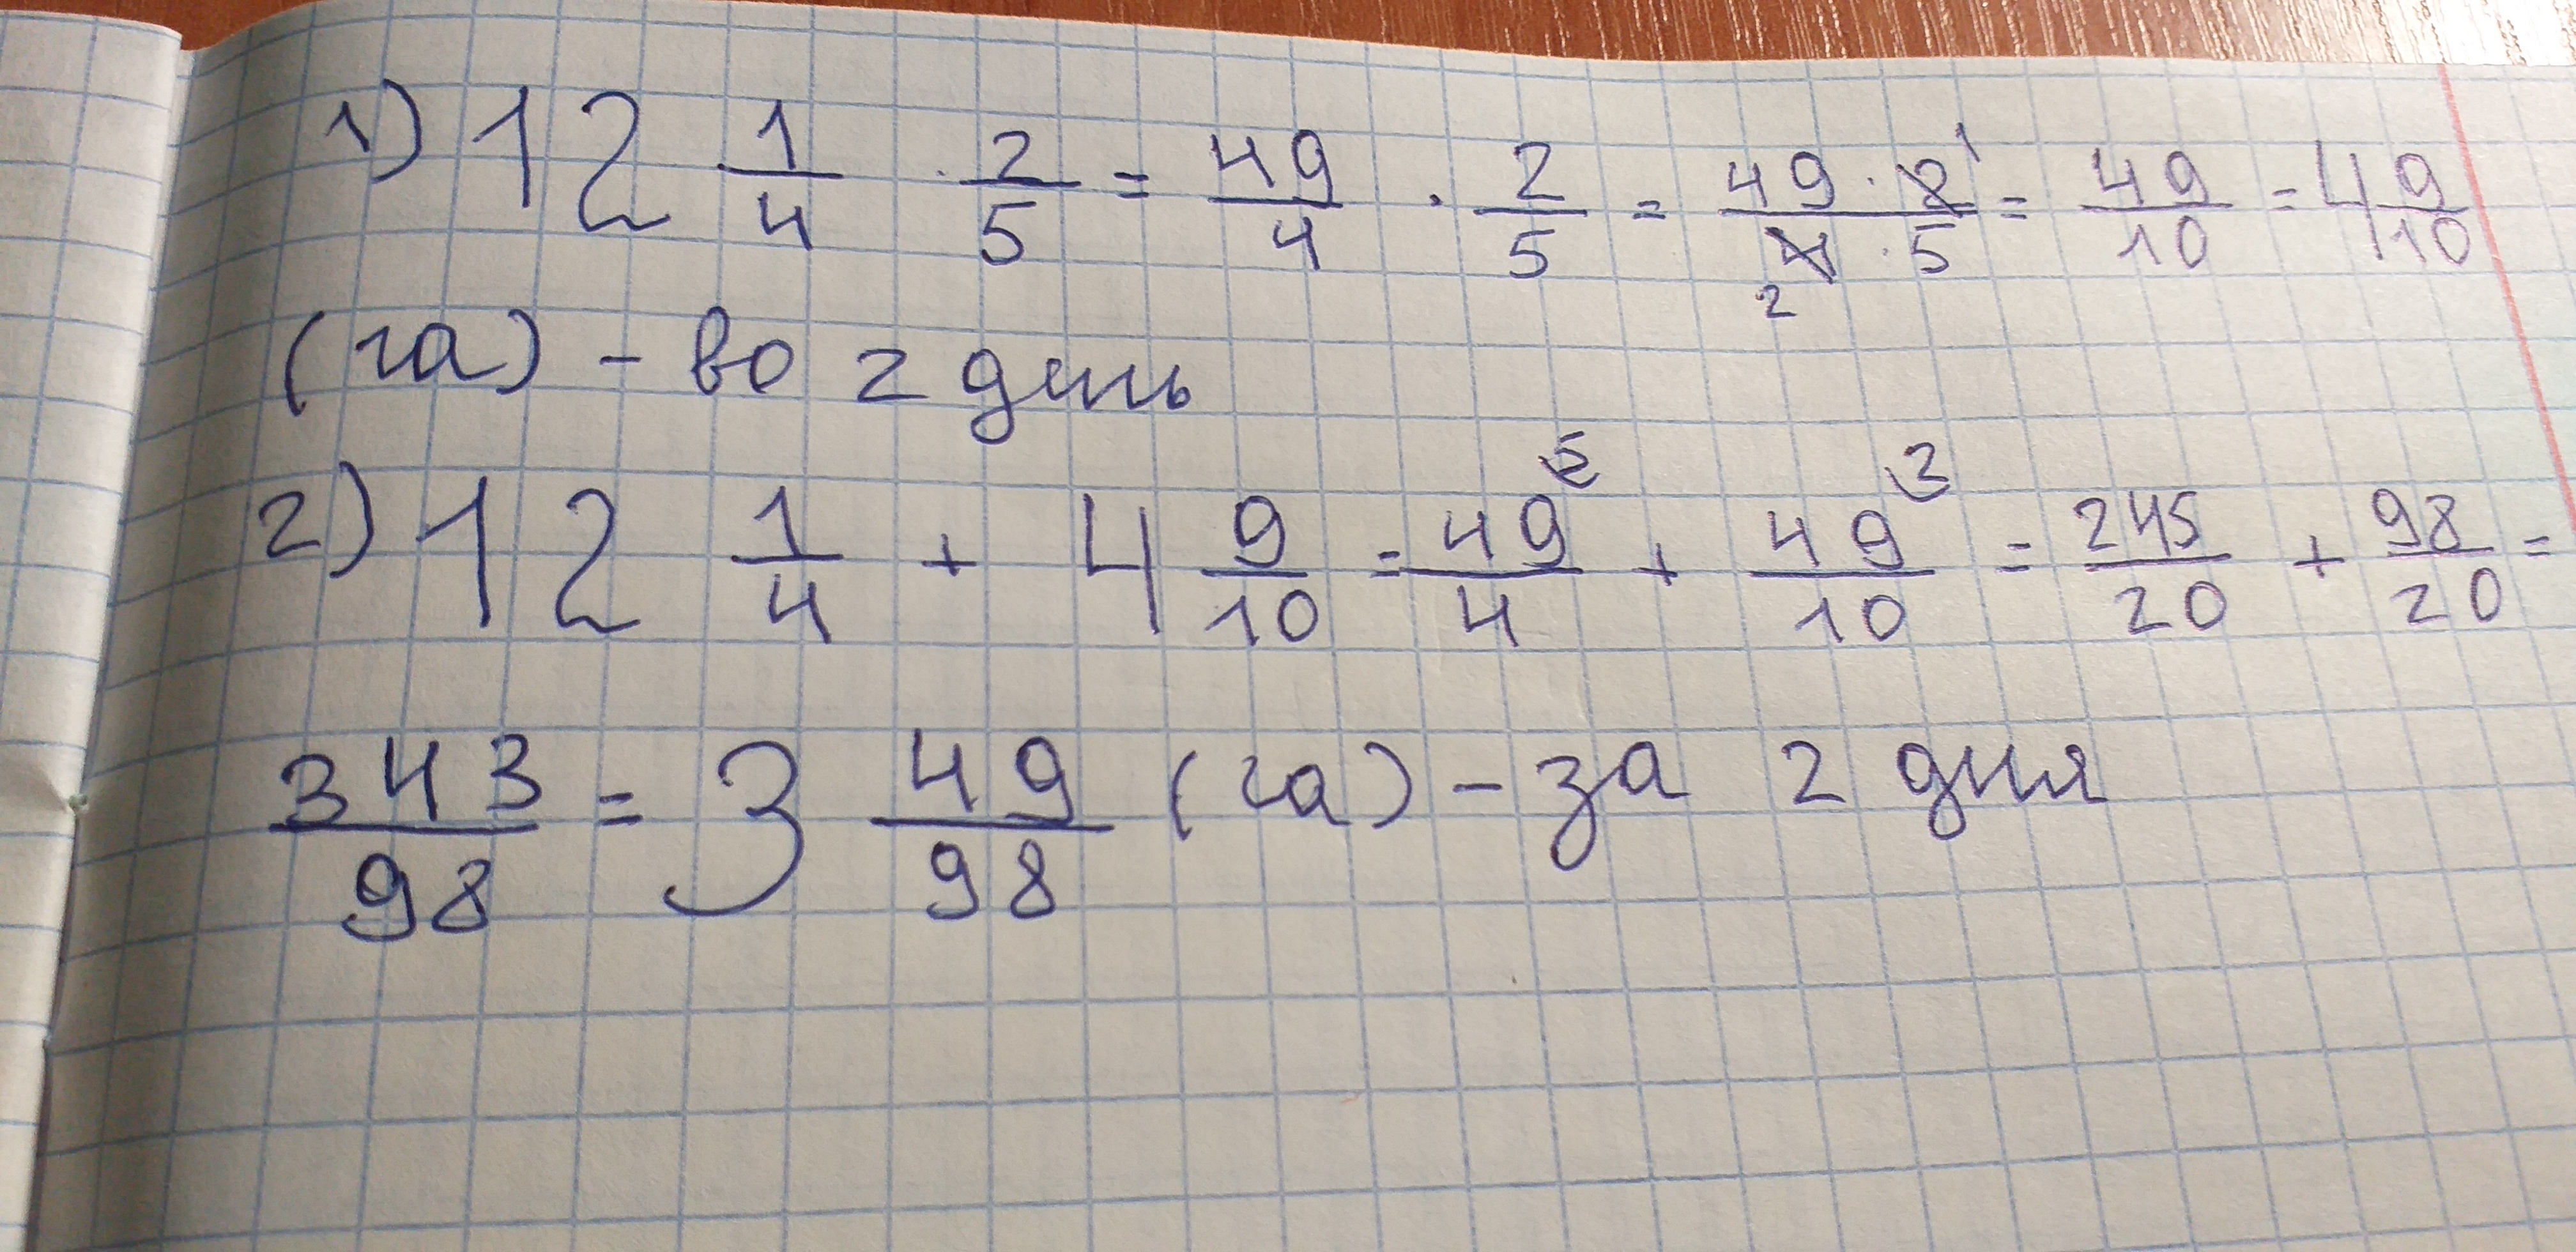 1) 12 1/4 · 2/5 = 49/4 · 2/5 = 49 · 2 1 / 4 2 · 5 = 49/10 = 4 9/10
(га) - во 2 день
2) 12 1/4 + 4 9/10 = 49/4 5 + 49/10 2 = 245/20 + 98/20 =
343/98 = 3 49/98 (га) - за 2 дня